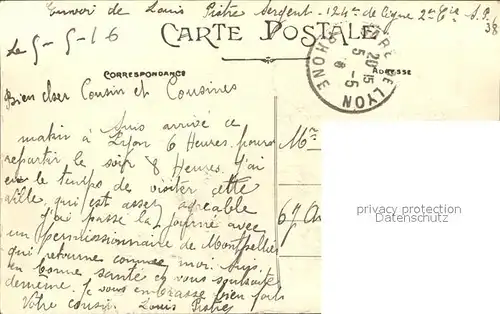 Envoi de Louis Pistre Sergent - 124e de ligne 2me Cie S.P. 38
Le 5-5-16
CARTE POSTALE
CORRESPONDANCE
ADRESSE
GARE LYON
RHONE
20 15
5 -5
Bien cher Cousin et Cousines
Suis arrivé ce
matin à Lyon 6 Heures. pour
repartir le soir 8 Heures. J'ai
eu le temps de visiter cette
ville, qui est assez agréable
J'ai passé la journée avec
un permissionnaire de Montpellier
qui retourne comme moi. Suis
en bonne santé et vous souhaite
de meme. Je vous embrasse bien fort
Votre cousin. Louis Pistre
Mr
67
privacy protection
Datenschutz